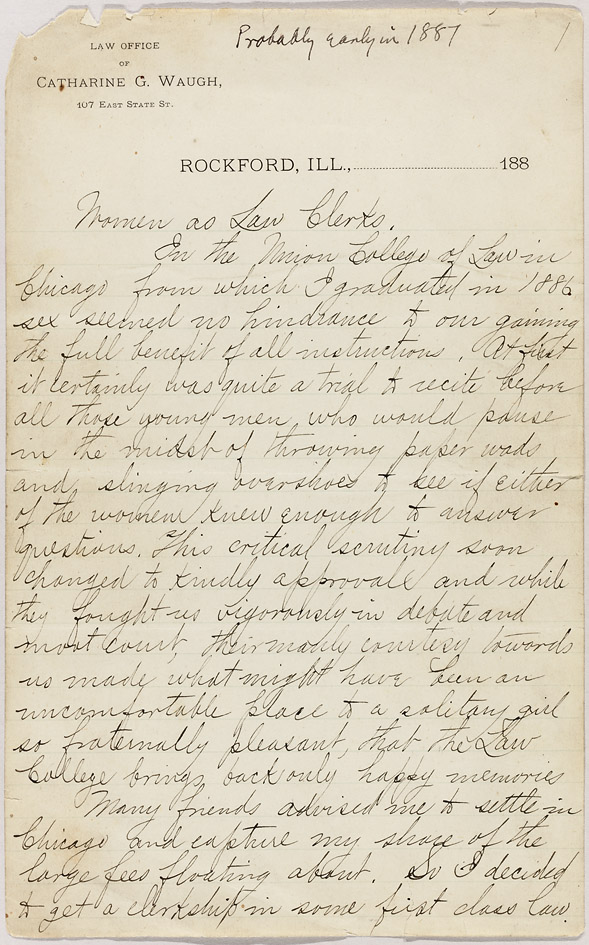 Probably early in 1887
1
LAW OFFICE
OF
CATHARINE G. WAUGH,
107 EAST STATE ST.
ROCKFORD, ILL., 188
Women as Law Clerks.
In the Union College of Law in
Chicago from which I graduated in 1886
sex seemed no hindrance to our gaining
the full benefit of all instructions. At first
it certainly was quite a trial to recite before
all those young men, who would pause
in the midst of throwing paper wads
and slinging overshoes to see if either
of the women knew enough to answer
questions. This critical scrutiny soon
changed to kindly approval and while
they fought us vigorously in debate and
moot court, their manly courtesy towards
us made what might have been an
uncomfortable place to a solitary girl
so fraternally pleasant, that the Law
College brings back only happy memories
Many friends advised me to settle in
Chicago and capture my share of the
large fees floating about. So I decided
to get a clerkship in some first class law